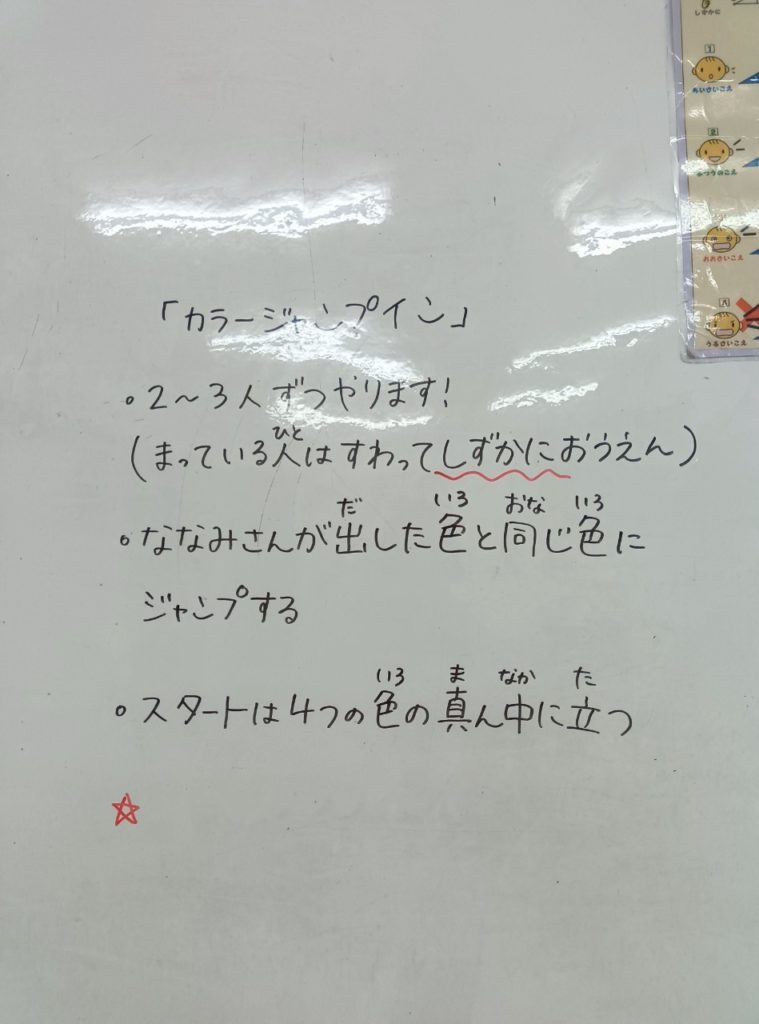 「カラージャンプイン」
。2〜3人ずつやります!
(まっている人はすわってしずかにおうえん)
ひと
。ななみさんが出した色と同じ色に
だ いろ おな いろ
ジャンプする
。スタートは4つの色の真ん中に立つ
いろ ま なか た
☆
しずかに
1
ちいさいこえ
2
ふつうのこえ
おおきいこえ
うるさいこえ